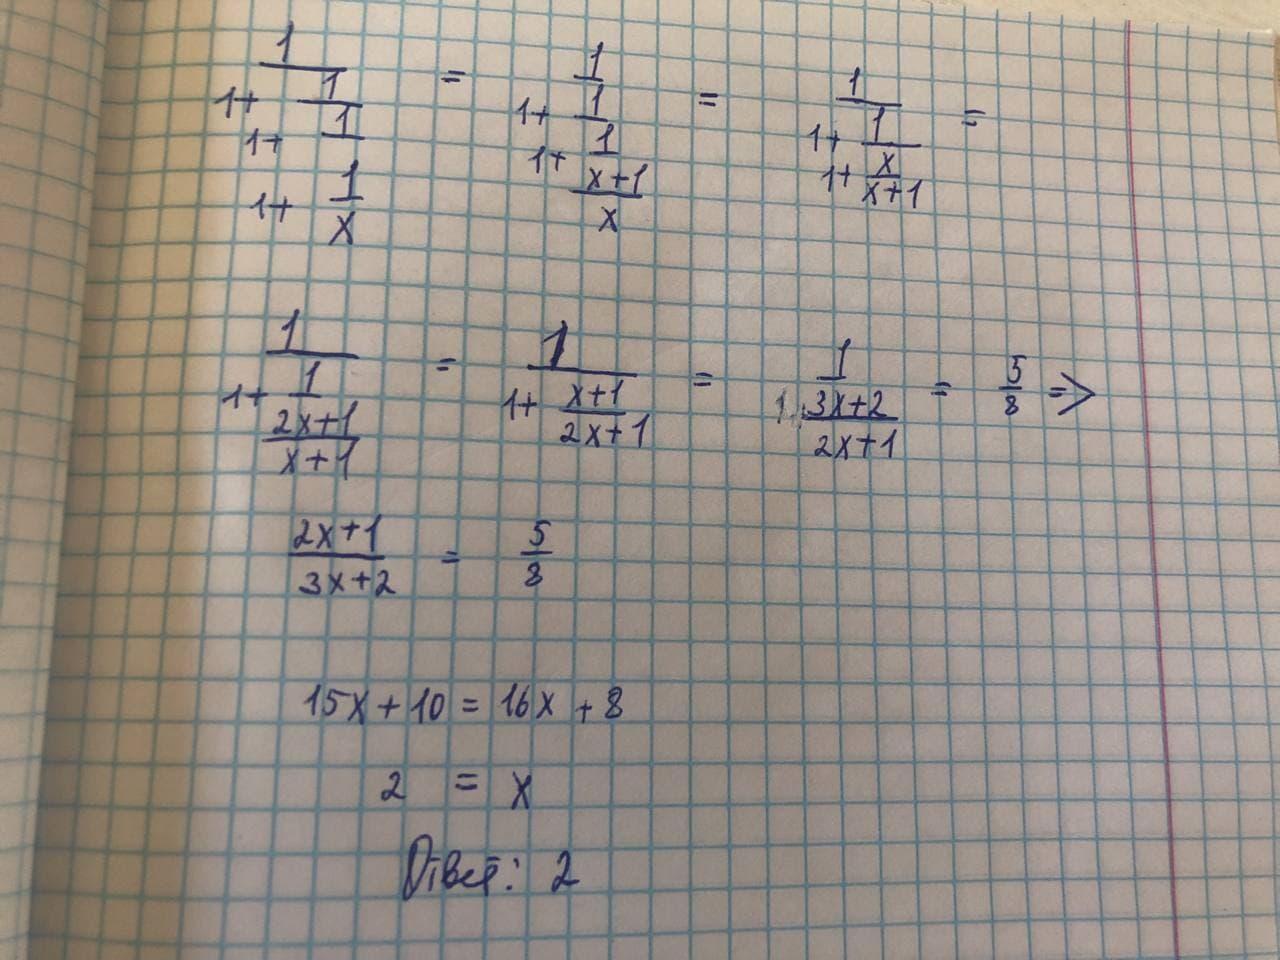 1/(1+1/(1+1/(1+1/x))) = 1/(1+1/(1+1/((x+1)/x))) = 1/(1+1/(1+x/(x+1))) =
1/(1+1/((2x+1)/(x+1))) = 1/(1+(x+1)/(2x+1)) = 1/((3x+2)/(2x+1)) = 5/8 =>
(2x+1)/(3x+2) = 5/8
15x + 10 = 16x + 8
2 = x
Ответ: 2